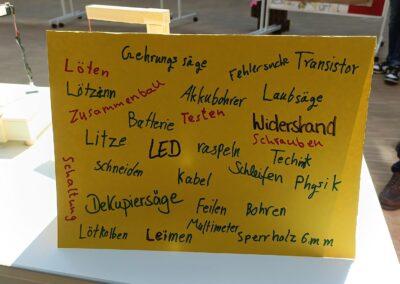 Gehrungssäge
Fehlersuche Transistor
Löten
Lötzinn Akkubohrer Laubsäge
Zusammenbau
Batterie Testen Widerstand
Litze LED raspeln Schrauben
Technik
Schneiden Kabel Schleifen Physik
Schaltung
Dekupiersäge Feilen Bohren
Lötkolben Leimen Multimeter Sperrholz 6mm